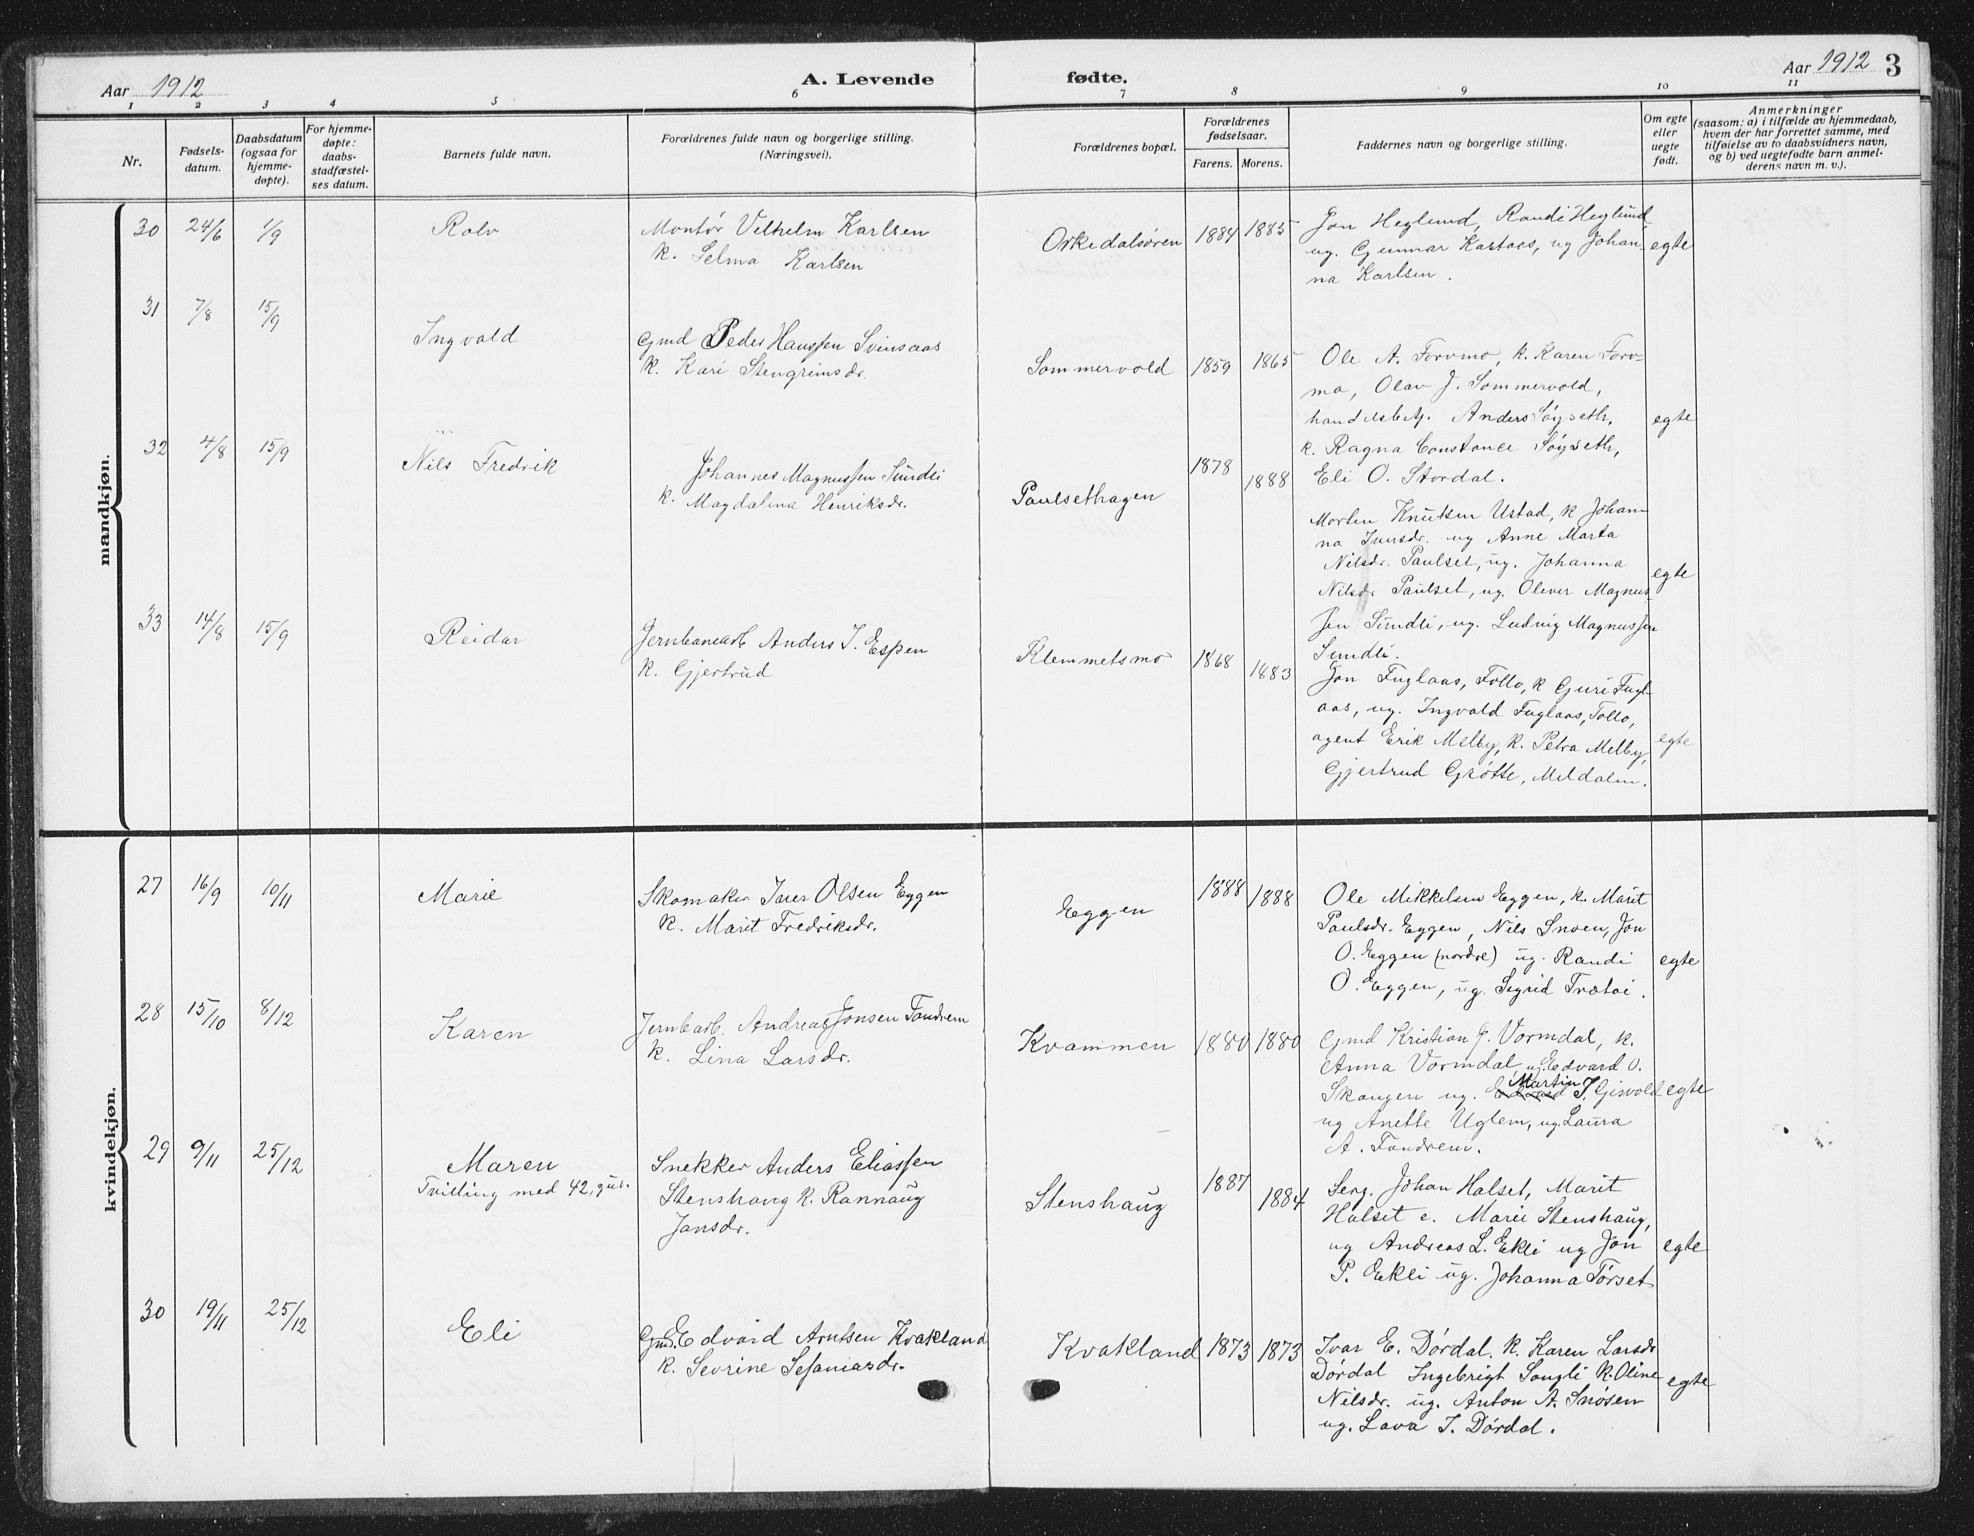 Aar 1912
A. Levende fødte.
Aar 1912 3
1 2 3 4 5 6 7 8 9 10 11
Nr.
Fødsels-
datum.
Daabsdatum
(ogsaa for
hjemme-
døpte).
For hjemme-
døpte:
daabs-
stadfæstel-
ses datum.
Barnets fulde navn.
Forældrenes fulde navn og borgerlige stilling.
(Næringsvei).
Forældrenes bopæl.
Forældrenes
fødselsaar.
Farens. Morens.
Faddernes navn og borgerlige stilling.
Om egte
eller
uegte
født.
Anmerkninger
(saasom: a) i tilfælde av hjemmedaab,
hvem der har forrettet samme, med
tilføielse av to daabsvidners navn,
og b) ved uegtefødte barn anmel-
derens navn m. v.).
mandkjøn.
30 24/6 1/9 Rolv
Montør Vilhelm Karlsen
k. Selma Karlsen
Orkedalsøren 1884 1885
Jon Heglund, Randi Heglund,
ug. Gunnar Kaataas, ug Johan-
na Karlsen.
egte
31 7/8 15/9 Ingvald
Gmd Peder Hanssen Svinsaas
k. Kari Stengrimsdr.
Sommervold 1859 1865
Ole A. Forvmo, k. Karen Forv-
mo, Olav J. Sommervold,
handelsbetj. Anders Søyseth,
k. Ragna Constance Søyseth,
Eli O. Stordal.
egte
32 4/8 15/9 Nils Fredrik
Johannes Magnussen Sundli
k. Magdalena Henriksdr.
Paulsethagen 1878 1888
Morten Knutsen Ustad, k Johan-
na Iversdr. ug Anne Marta
Nilsdr. Paulset, ug. Johanna
Nilsdr Paulset, ug. Oliver Magnus-
sen Sundli, ug. Ludvig Magnussen
Sundli.
egte
33 14/8 15/9 Reidar
Jernbanearb Anders I. Espen
k. Gjertrud
Klemmetsmo 1868 1883
Jon Fuglaas, Follo, k Guri Fugl-
aas, ug. Ingvald Fuglaas, Follo,
agent Erik Melby, k. Petra Melby,
Gjertrud Grøtte, Meldalen.
egte
kvindekjøn.
27 16/9 10/11 Marie
Skomaker Iver Olsen Eggen
k. Marit Fredriksdr.
Eggen 1888 1888
Ole Mikkelsen Eggen, k. Marit
Paulsdr. Eggen, Nils Snoen, Jon
O. Eggen (nordre) ug. Randi
O. Eggen, ug. Sigrid Trætøi.
egte
28 15/10 8/12 Karen
Jernbarb. Andreas Jonsen Fandrem
k. Lina Larsdr.
Kvammen 1880 1880
Gmd Kristian J. Vormdal, k.
Anna Vormdal ug. Edvard O.
Skaugen ug. Edvard Martin J. Gisvold
ug Anette Uglem, ug. Laura
A. Fandrem.
egte
29 9/11 25/12 Maren
Tvilling med 42, gut.
Snekker Anders Eliassen
Stenshaug k. Rannaug
Jonsdr.
Stenshaug 1887 1884
Serg. Johan Halset, Marit
Halset e. Marie Stenshaug,
ug Andreas L. Ekli ug Jon
P. Ekli ug. Johanna Tørset
egte
30 19/11 25/12 Eli
Gmd. Edvard Arntsen Kvakland
k. Sevrine Sefaniasdr.
Kvakland 1873 1873
Ivar E. Dørdal. k. Karen Larsdr
Dørdal Ingebrigt Songli k. Oline
Nilsdr. ug. Anton A. Snøsen
ug. Lava I. Dørdal.
egte